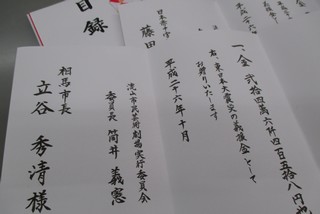 目録
日本赤十字
藤田
平成二十六
一、金 弐拾四萬六阡四百五拾八円也
右、東日本大震災の義援金として
お贈りいたします
平成二十六年十月
流山市民芸術劇場実行委員会
委員長 筒井 義憲
相馬市長
立谷 秀清 様